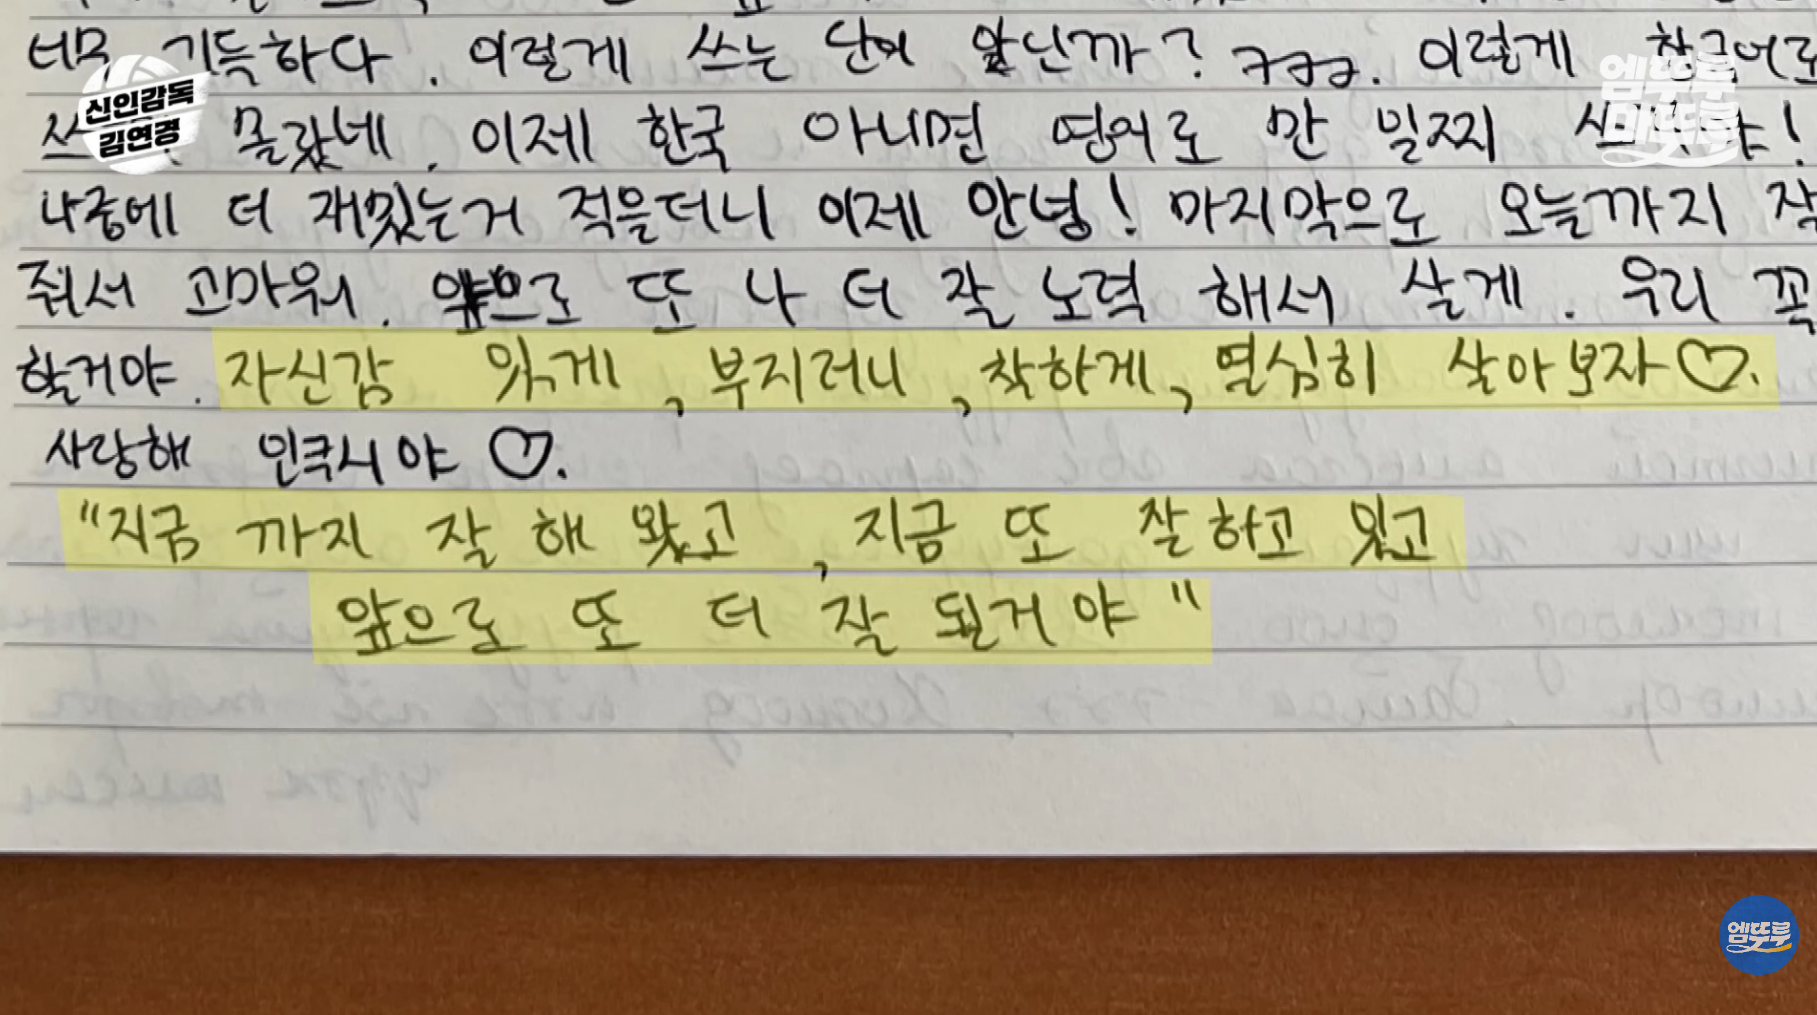 기득하다. 이럴게 쓰는 단어 맞닌까? ㅋㅋㅋ. 이럴게
몰랐네. 이제 한국 아니면 영어로 만 일찌
나중에 더 재밌는거 적을터니 이제 안녕! 마지막으로 오늘까지 잘
줘서 고마워. 앞으로 또 나 더 잘 노력 해서 살게. 우리 꼭
할거야. 자신감 있게, 부지러니, 착하게, 열심히 살아보자♡.
사랑해 인쿠시야 ♡.
"지금 까지 잘 해 왔고, 지금 또 잘하고 있고
앞으로 또 더 잘 된거야"
신인감독
김연경
엠뚜루
마뚜루
엠뚜루